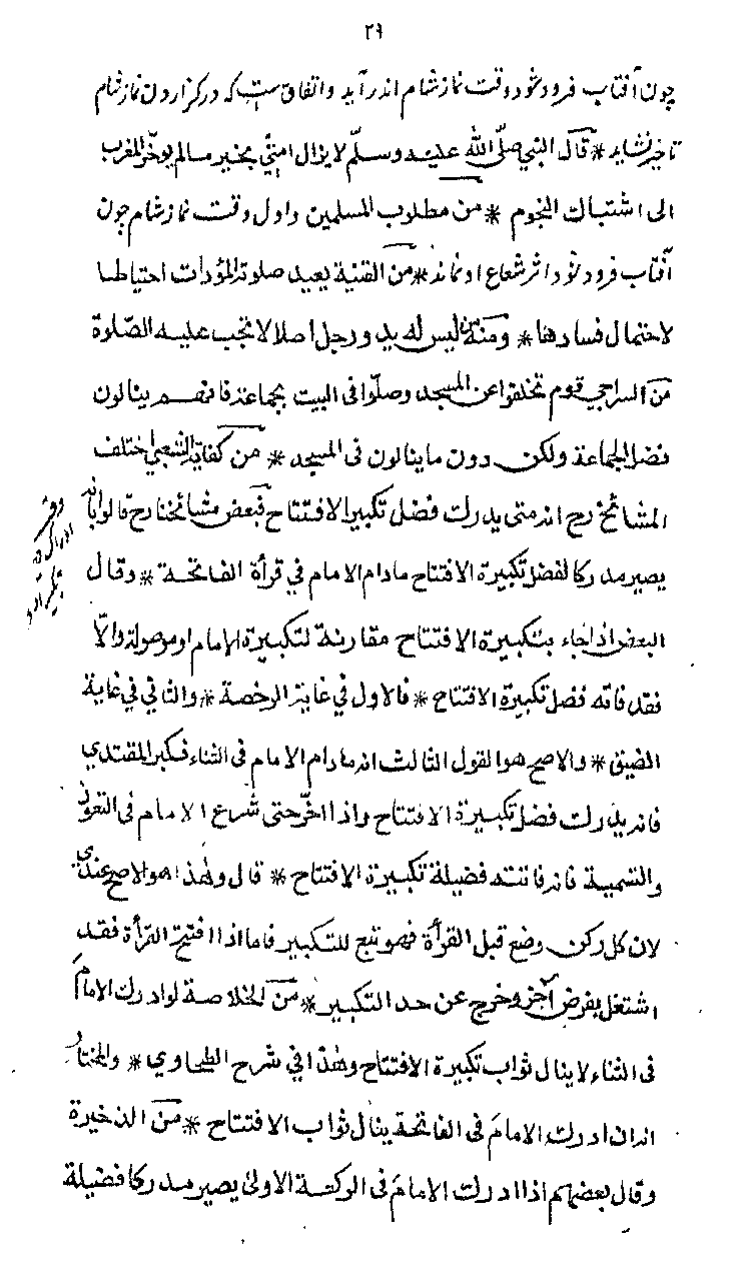 ٢٩
چون آفتاب فرو شود وقت نماز شام اندر آید واتفاق است که در گزاردن نماز شام
تاخیر نشاید * قال النبي صلّى الله عليه وسلّم لا يزال امتي بخير مالم يؤخّر المغرب
الى اشتباك النجوم * من مطلوب المسلمين واول وقت نماز شام چون
آفتاب فرو شود اثر شعاع او نماند * من القنية يعيد صلوة المؤدات احتياطا
لاحتمال فسادها * ومنه من ليس له يد ورجل اصلا لا تجب عليه الصّلوة
من السراجي قوم تخلفوا عن المسجد وصلّوا فى البيت بجماعة فانهم ينالون
فضل الجماعة ولكن دون ما ينالون فى المسجد * من كفاية الشعبي اختلف
المشائخ رح انه متى يدرك فضل تكبير الافتتاح فبعض مشائخنا رح قالوا بانه
يصير مدركا لفضل تكبيرة الافتتاح مادام الامام في قرأة الفاتحة * وقال
البعض اذا جاء بتكبيرة الافتتاح مقارنة لتكبيرة الامام او موصولة والّا
فقد فاته فضل تكبيرة الافتتاح * فالاول في غاية الرخصة * والثاني في غاية
الضيق * والاصح هو القول الثالث انه مادام الامام فى الثناء فكبر المقتدي
فانه يدرك فضل تكبيرة الافتتاح واذا اخّر حتى شرع الامام فى التعوذ
والتسمية فانه فاتته فضيلة تكبيرة الافتتاح * قال وهذا هو الاصح عندي
لان كل ركن وضع قبل القرأة فهو تبع للتكبير فاما اذا افتتح القرأة فقد
اشتغل بفرض آخر وخرج عن حد التكبير * من الخلاصة لو ادرك الامام
فى الثناء لا ينال ثواب تكبيرة الافتتاح وهذا في شرح الطحاوي * والمختار
انه ان ادرك الامام فى الفاتحة ينال ثواب الافتتاح * من الذخيرة
وقال بعضهم اذا ادرك الامام فى الركعة الاولى يصير مدركا فضيلة
وقت
ادراك
تكبير